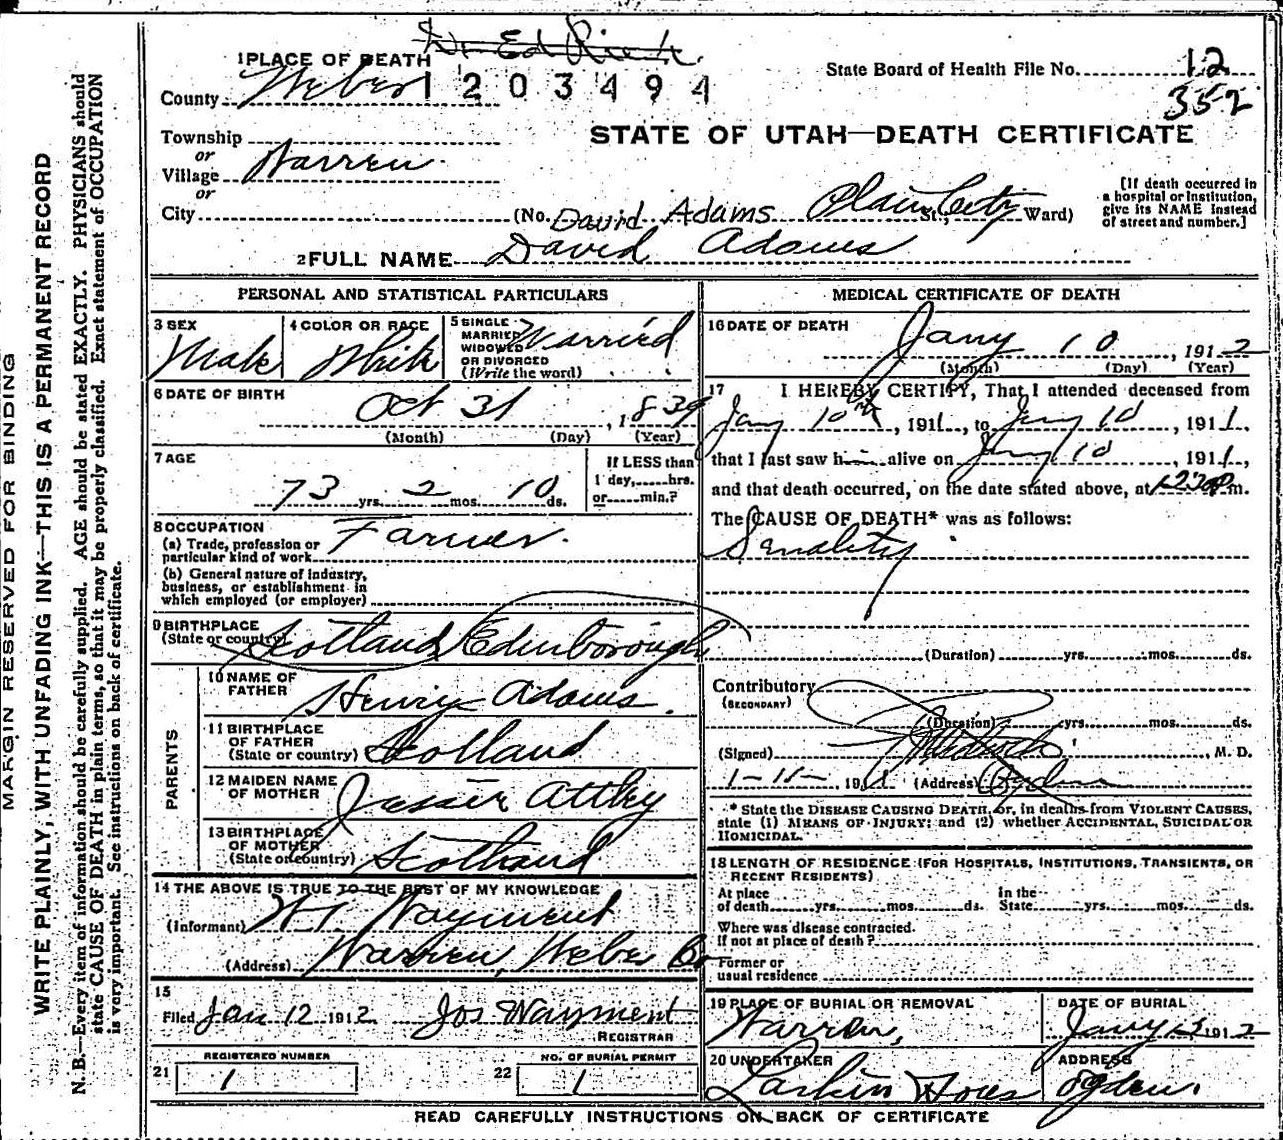 Dr Ed Rich
1 PLACE OF DEATH
County Weber 1 2 0 3 4 9 4
State Board of Health File No. 12
352
STATE OF UTAH—DEATH CERTIFICATE
Township
or
Village Warren
or
City (No. David Adams Plain City St.; Ward)
[If death occurred in a hospital or institution, give its NAME instead of street and number.]
2 FULL NAME David Adams
PERSONAL AND STATISTICAL PARTICULARS
3 SEX Male
4 COLOR OR RACE White
5 SINGLE MARRIED WIDOWED OR DIVORCED (Write the word) Married
6 DATE OF BIRTH
Oct 31, 1839
(Month) (Day) (Year)
7 AGE
73 yrs. 2 mos. 10 ds.
If LESS than 1 day, hrs. or min.?
8 OCCUPATION
(a) Trade, profession or particular kind of work Farmer.
(b) General nature of industry, business, or establishment in which employed (or employer)
9 BIRTHPLACE
(State or country) Scotland Edenborough
PARENTS
10 NAME OF FATHER Henry Adams.
11 BIRTHPLACE OF FATHER (State or country) Scotland
12 MAIDEN NAME OF MOTHER Jessie Attley
13 BIRTHPLACE OF MOTHER (State or country) Scotland
14 THE ABOVE IS TRUE TO THE BEST OF MY KNOWLEDGE
(Informant) Wayment
(Address) Warren, Weber Co
15
Filed Jan 12 1912 Jos Wayment
REGISTRAR
21 REGISTERED NUMBER 1
22 NO. OF BURIAL PERMIT 1
MEDICAL CERTIFICATE OF DEATH
16 DATE OF DEATH
Jany 10, 1912
(Month) (Day) (Year)
17 I HEREBY CERTIFY, That I attended deceased from
Jany 10th, 1911, to Jany 10, 1911,
that I last saw h alive on Jany 10, 1911,
and that death occurred, on the date stated above, at m.
The CAUSE OF DEATH* was as follows:
Senality
(Duration) yrs. mos. ds.
Contributory
(SECONDARY)
(Duration) yrs. mos. ds.
(Signed) M. D.
1-11- 1911 (Address) Ogden
* State the DISEASE CAUSING DEATH, or, in deaths from VIOLENT CAUSES, state (1) MEANS OF INJURY; and (2) whether ACCIDENTAL, SUICIDAL OR HOMICIDAL.
18 LENGTH OF RESIDENCE (FOR HOSPITALS, INSTITUTIONS, TRANSIENTS, OR RECENT RESIDENTS)
At place of death yrs. mos. ds. In the State yrs. mos. ds.
Where was disease contracted. If not at place of death?
Former or usual residence
19 PLACE OF BURIAL OR REMOVAL
Warren,
DATE OF BURIAL
Jany 1912
20 UNDERTAKER
Larkin
ADDRESS
Ogden.
READ CAREFULLY INSTRUCTIONS ON BACK OF CERTIFICATE
MARGIN RESERVED FOR BINDING
WRITE PLAINLY, WITH UNFADING INK—THIS IS A PERMANENT RECORD
N. B.—Every item of information should be carefully supplied. AGE should be stated EXACTLY. PHYSICIANS should
state CAUSE OF DEATH in plain terms, so that it may be properly classified. Exact statement of OCCUPATION
is very important. See instructions on back of certificate.